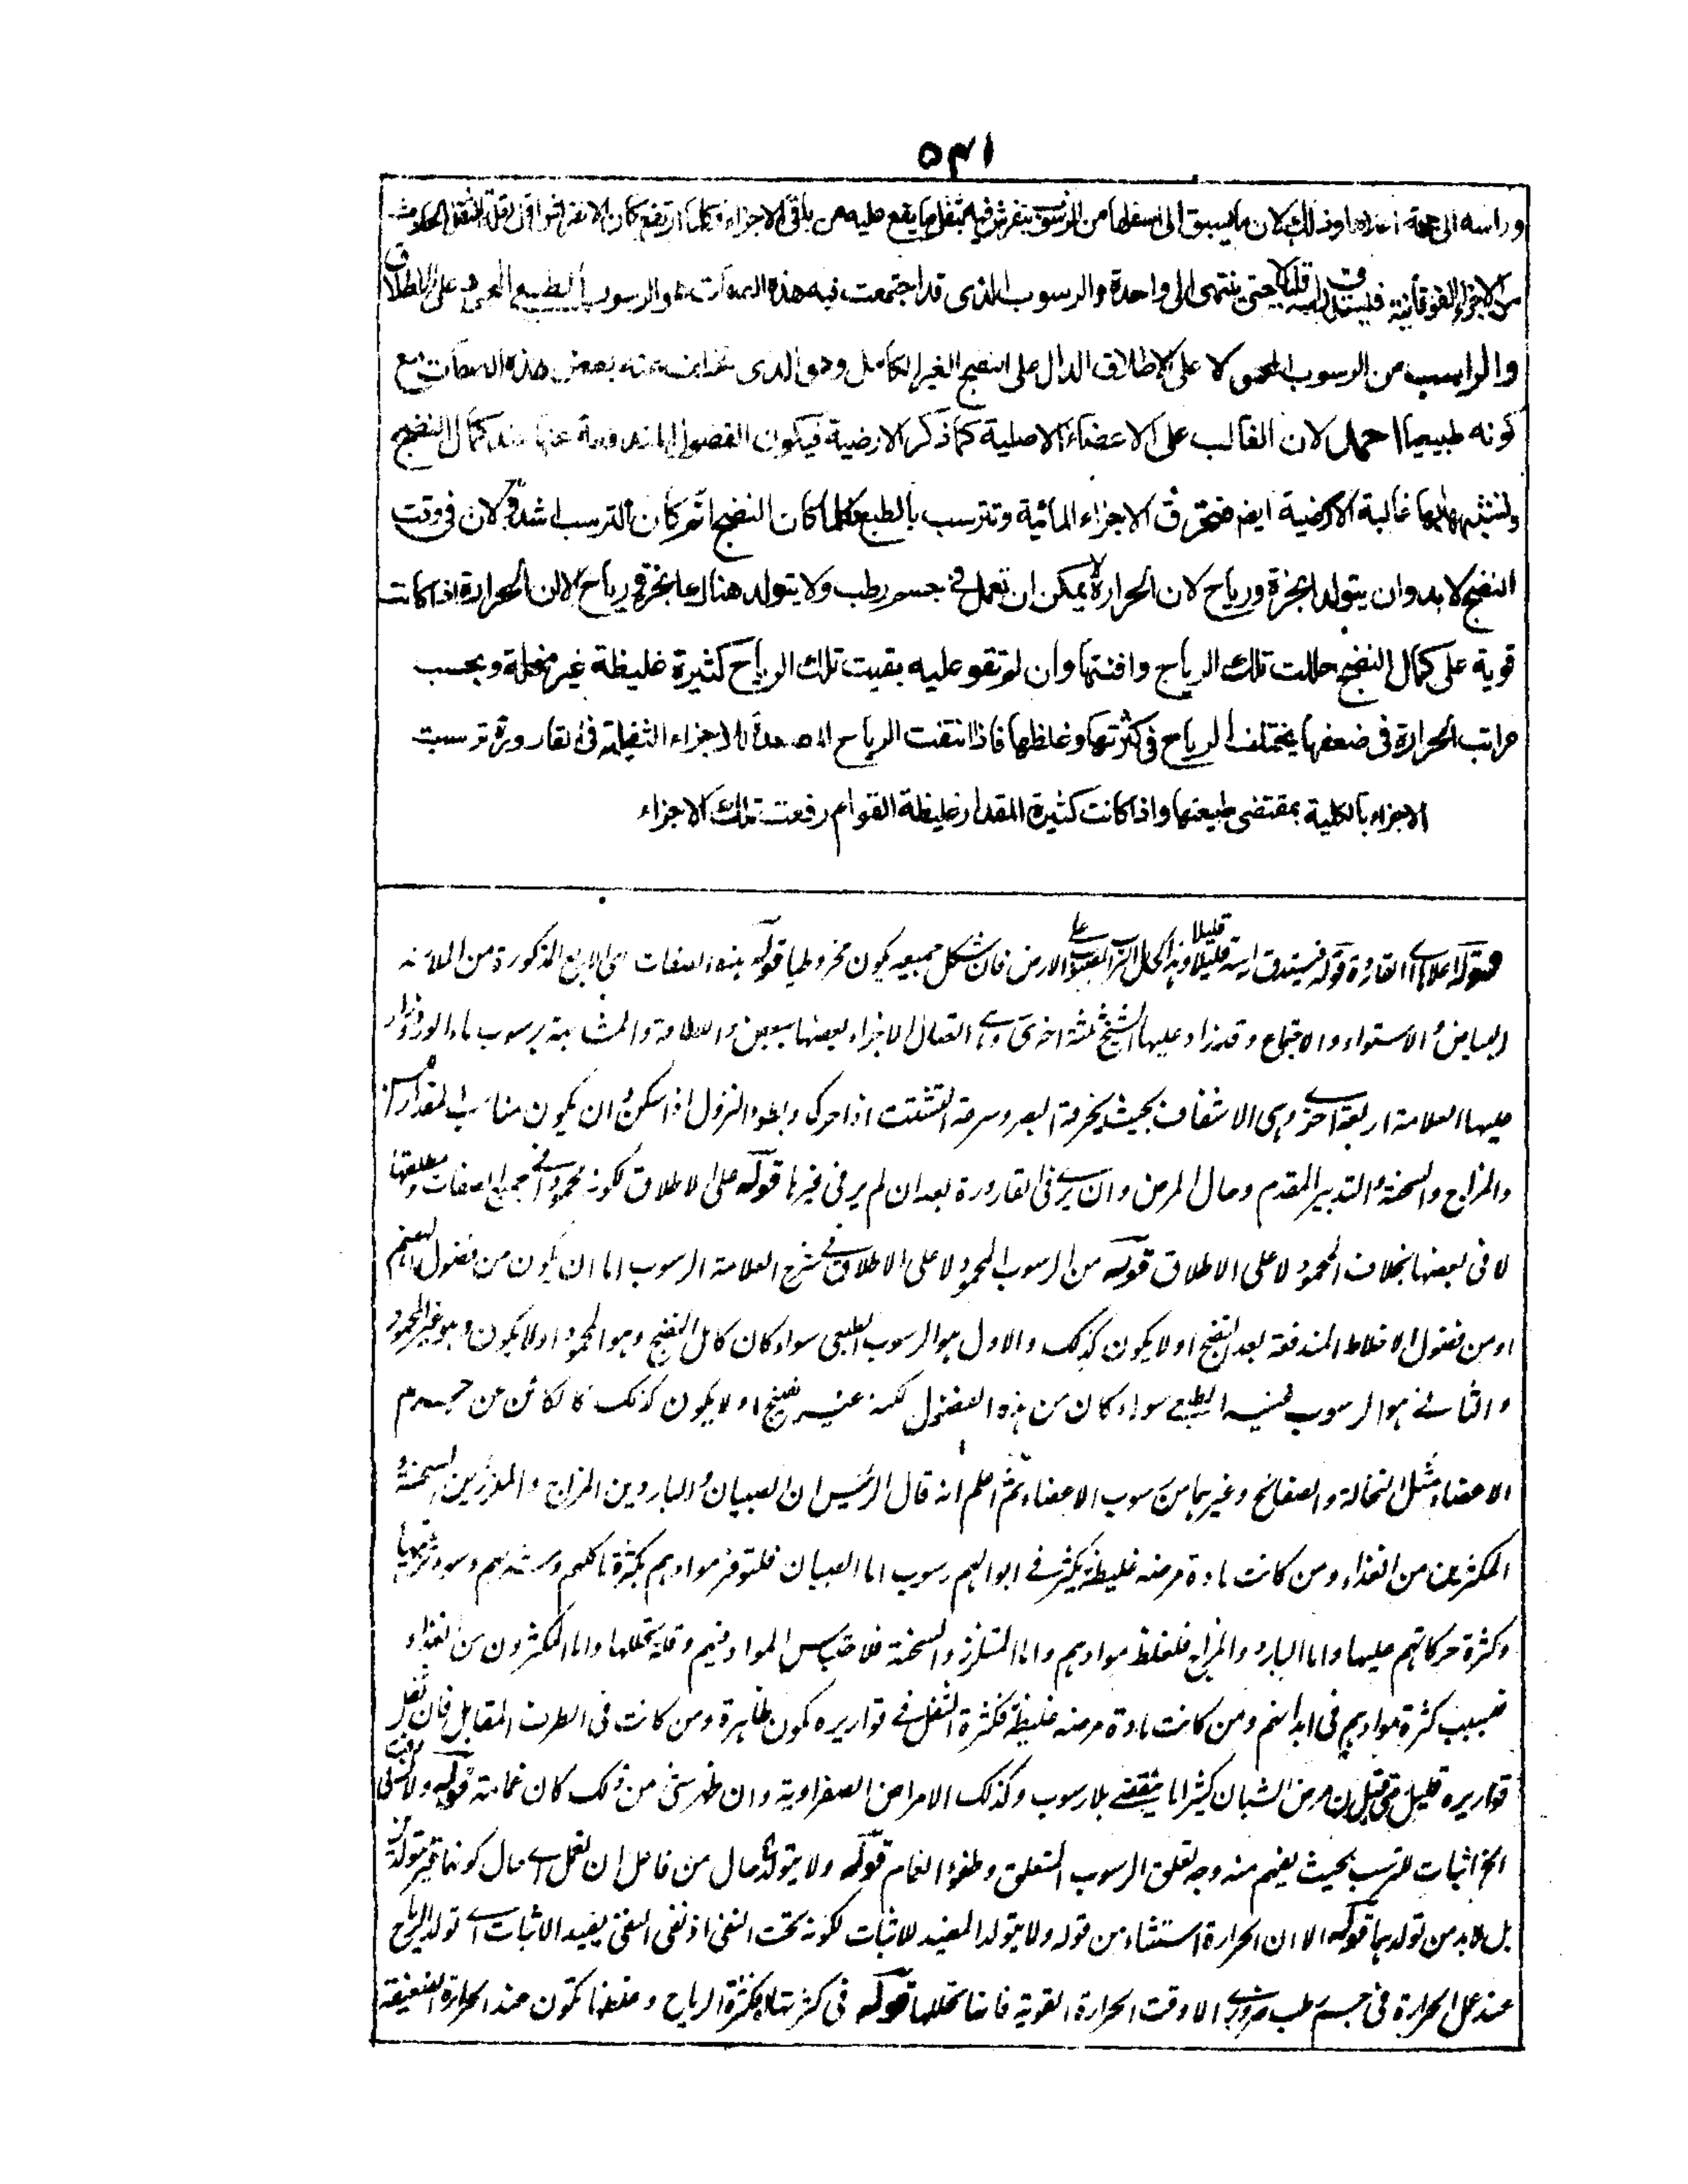 ۵۳۱
وراسه الى جهة اعلاها وذلك لان ما يسبق الى اسفلها من الرسوب يتفرش فيه بثقل ما يقع عليه من باقى الاجزاء وكلما ارتفع كان الانفراش اقل لقلة الثقل الحادث
من الاجزاء الفوقانية فيستدق راسه قليلا قليلا حتى ينتهى الى واحدة والرسوب الذى قد اجتمعت فيه هذه الصفات هو الرسوب الطبيعى المحمود على الاطلاق
والراسب من الرسوب المحمود لا على الاطلاق الدال على النضج الغير الكامل وهو الذى بعض هذه الصفات مع
كونه طبيعيا احمد لان الغالب على الاعضاء الاصلية كما ذكر الارضية فيكون الفضول المندفعة عنها عند كمال النضج
غالبة الارضية ايضا فتخرق الاجزاء المائية وتترسب بالطبع فكلما كان النضج اتم كان الترسب اشد لان فى وقت
النضج لا بد وان يتولد ابخرة ورياح لان الحرارة لا يمكن ان تعمل فى جسم رطب ولا يتولد هناك ابخرة ورياح الا ان الحرارة اذا كانت
قوية على كمال النضج حللت تلك الرياح وافنتها وان لم تقو عليه بقيت تلك الرياح كثيرة غليظة غير منحلة وبحسب
مراتب الحرارة فى ضعفها يختلف الرياح فى كثرتها وغلظها فاذا انتفت الرياح المصعدة للاجزاء الثقيلة فى القارورة ترسبت
الاجزاء بالكلية بمقتضى طبيعتها واذا كانت كثيرة المقدار غليظة القوام رفعت تلك الاجزاء
قوله اعلاها اى القارورة قوله فيستدق راسه قليلا قليلا وهذا كحال التراب المصبوب على الارض فان شكل جميعه يكون مخروطيا قوله هذه الصفات اى الاربع المذكورة من الملاسة
والبياض والاستواء والاجتماع وقد زاد عليها الشيخ ثلثة اخرى وهى اتصال الاجزاء بعضها ببعض والملامة والمشابهة برسوب ماء الورد وزاد
عليها العلامة اربعة اخرى وهى الاشفاف بحيث يخرقه البصر وسرعة التشتت اذا حرك وبطؤ النزول اذا سكن وان يكون مناسبا لمقدار السن
والمزاج والسحنة والتدبير المتقدم وحال المرض وان يرى فى القارورة بعد ان لم ير فى غيرها قوله على الاطلاق لكونه محمودا فى جميع الصفات
لا فى بعضها بخلاف المحمود لا على الاطلاق قوله من الرسوب المحمود لا على الاطلاق فى شرح العلامة الرسوب اما ان يكون من فضول الهضم
او من فضول الاخلاط المندفعة بعد النضج او لا يكون كذلك والاول هو الرسوب الطبيعى سواء كان كامل النضج وهو المحمود او لا يكون وهو غير المحمود
والثانى هو الرسوب الغير الطبيعى سواء كان من هذه الفضول لكنه غير نضيج او لا يكون كذلك كالكائن عن جرم
الاعضاء مثل النخالة والصفائح وغيرهما من رسوب الاعضاء ثم اعلم انه قال الرئيس ان الصبيان والباردين المزاج والملززين السحنة
المكثرين من الغذاء ومن كانت مادة مرضه غليظة يكثر فى ابوالهم رسوب اما الصبيان فلتوفر موادهم بكثرة اكلهم
وكثرة حركاتهم عليها واما البارد والمزاج فلغلظ موادهم واما المتلزز والسحنة فلاحتباس المواد فيهم وقلة تحللها واما المكثرون من الغذاء
فبسبب كثرة موادهم فى ابدانهم ومن كانت مادة مرضه غليظة فكثرة الثفل فى قواريره يكون ظاهرة ومن كانت فى الطرف المقابل فان ثفل
قواريره قليل حتى قيل ان مرض الشبان كثيرا ما ينقضى بلا رسوب وكذلك الامراض الصفراوية وان ظهر شئ من ذلك كان غمامة قوله ولان فى وقت
الخ اثبات للترسب بحيث يفهم منه وجه تعلق الرسوب المتعلق وطفو الغمام قوله ولا يتولد حال من فاعل ان تعمل اى حال كونها غير متولدة
بل لا بد من تولدهما قوله الا ان الحرارة استثناء من قوله ولا يتولد المفيد للاثبات لكونه تحت النفى اذ نفى النفى يفيد الاثبات اى تولد الرياح
عند عمل الحرارة فى جسم رطب ضرورى الا وقت الحرارة القوية فانها تحللها قوله فى كثرتها فكثرة الرياح وغلظها تكون عند الحرارة الضعيفة